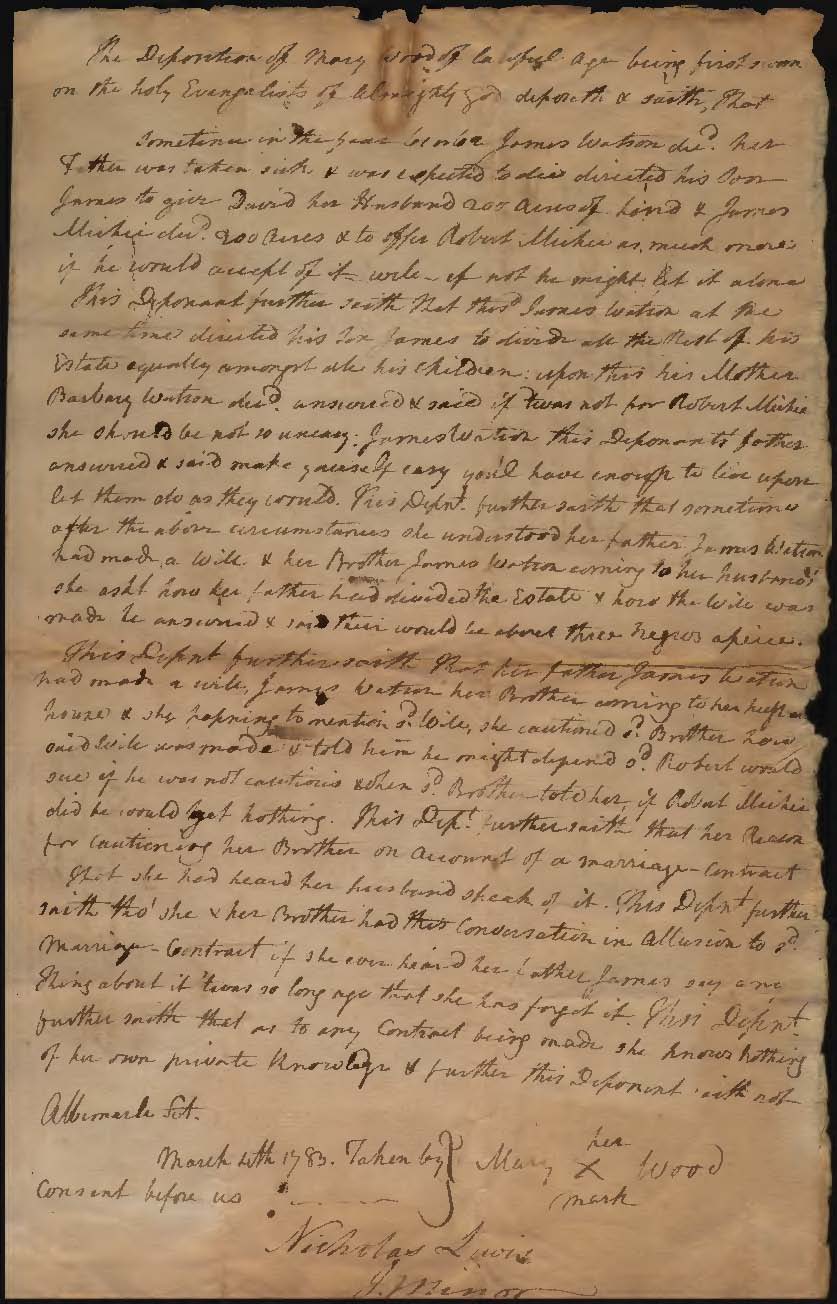 The Deposition of Mary Wood of lawful age being first sworn
on the holy Evangelists of Almighty god deposeth & saith, That
Sometime in the year James Watson decd. her
Father was taken sick & was expected to die directed his Son
James to give David her Husband 200 Acres of Land & James
Michie decd. 200 Acres & to offer Robert Michie as much more
if he would accept of it well - if not he might let it alone
This Deponant further saith that the sd. James Watson at the
same time directed his Son James to divide all the Rest of his
Estate equally amongst all his Children: upon this his Mother
Barbary Watson decd. answered & said if twas not for Robert Michie
she should be not so uneasy: James Watson this Deponants father
answered & said make yourself easy you'l have enough to live upon
let them do as they would. This Depnt. further saith that sometime
after the above circumstances she understood her father James Watson
had made a Will & her Brother James Watson coming to her husband's
she askt how her father had divided the Estate & how the Will was
made he answered & said their would be about three Negros apiece.
This Depnt further saith that her father James Watson
had made a will, James Watson her Brother coming to her
house & she hapning to mention sd. Will, she cautioned sd. Brother how
said Will was made & told him he might depend sd. Robert would
sue if he was not cautious & then sd. Brother told her, if Robert Michie
did he would get nothing. This Dept. further saith that her Reason
for cautioning her Brother on Account of a marriage-Contract
that she had heard her husband speak of it. This Depnt further
saith tho' she & her Brother had this Conversation in Allusion to sd.
Marriage-Contract if she ever heard her Father James say any
thing about it 'twas so long ago that she has forgot it. This Depnt.
further saith that as to any Contract being made she knows nothing
of her own private Knowledge & further this Deponent saith not
Albemarle Sct.
her
March 4th 1783. Taken by } Mary X Wood
Consent before us mark
Nicholas Lewis
J. Minor